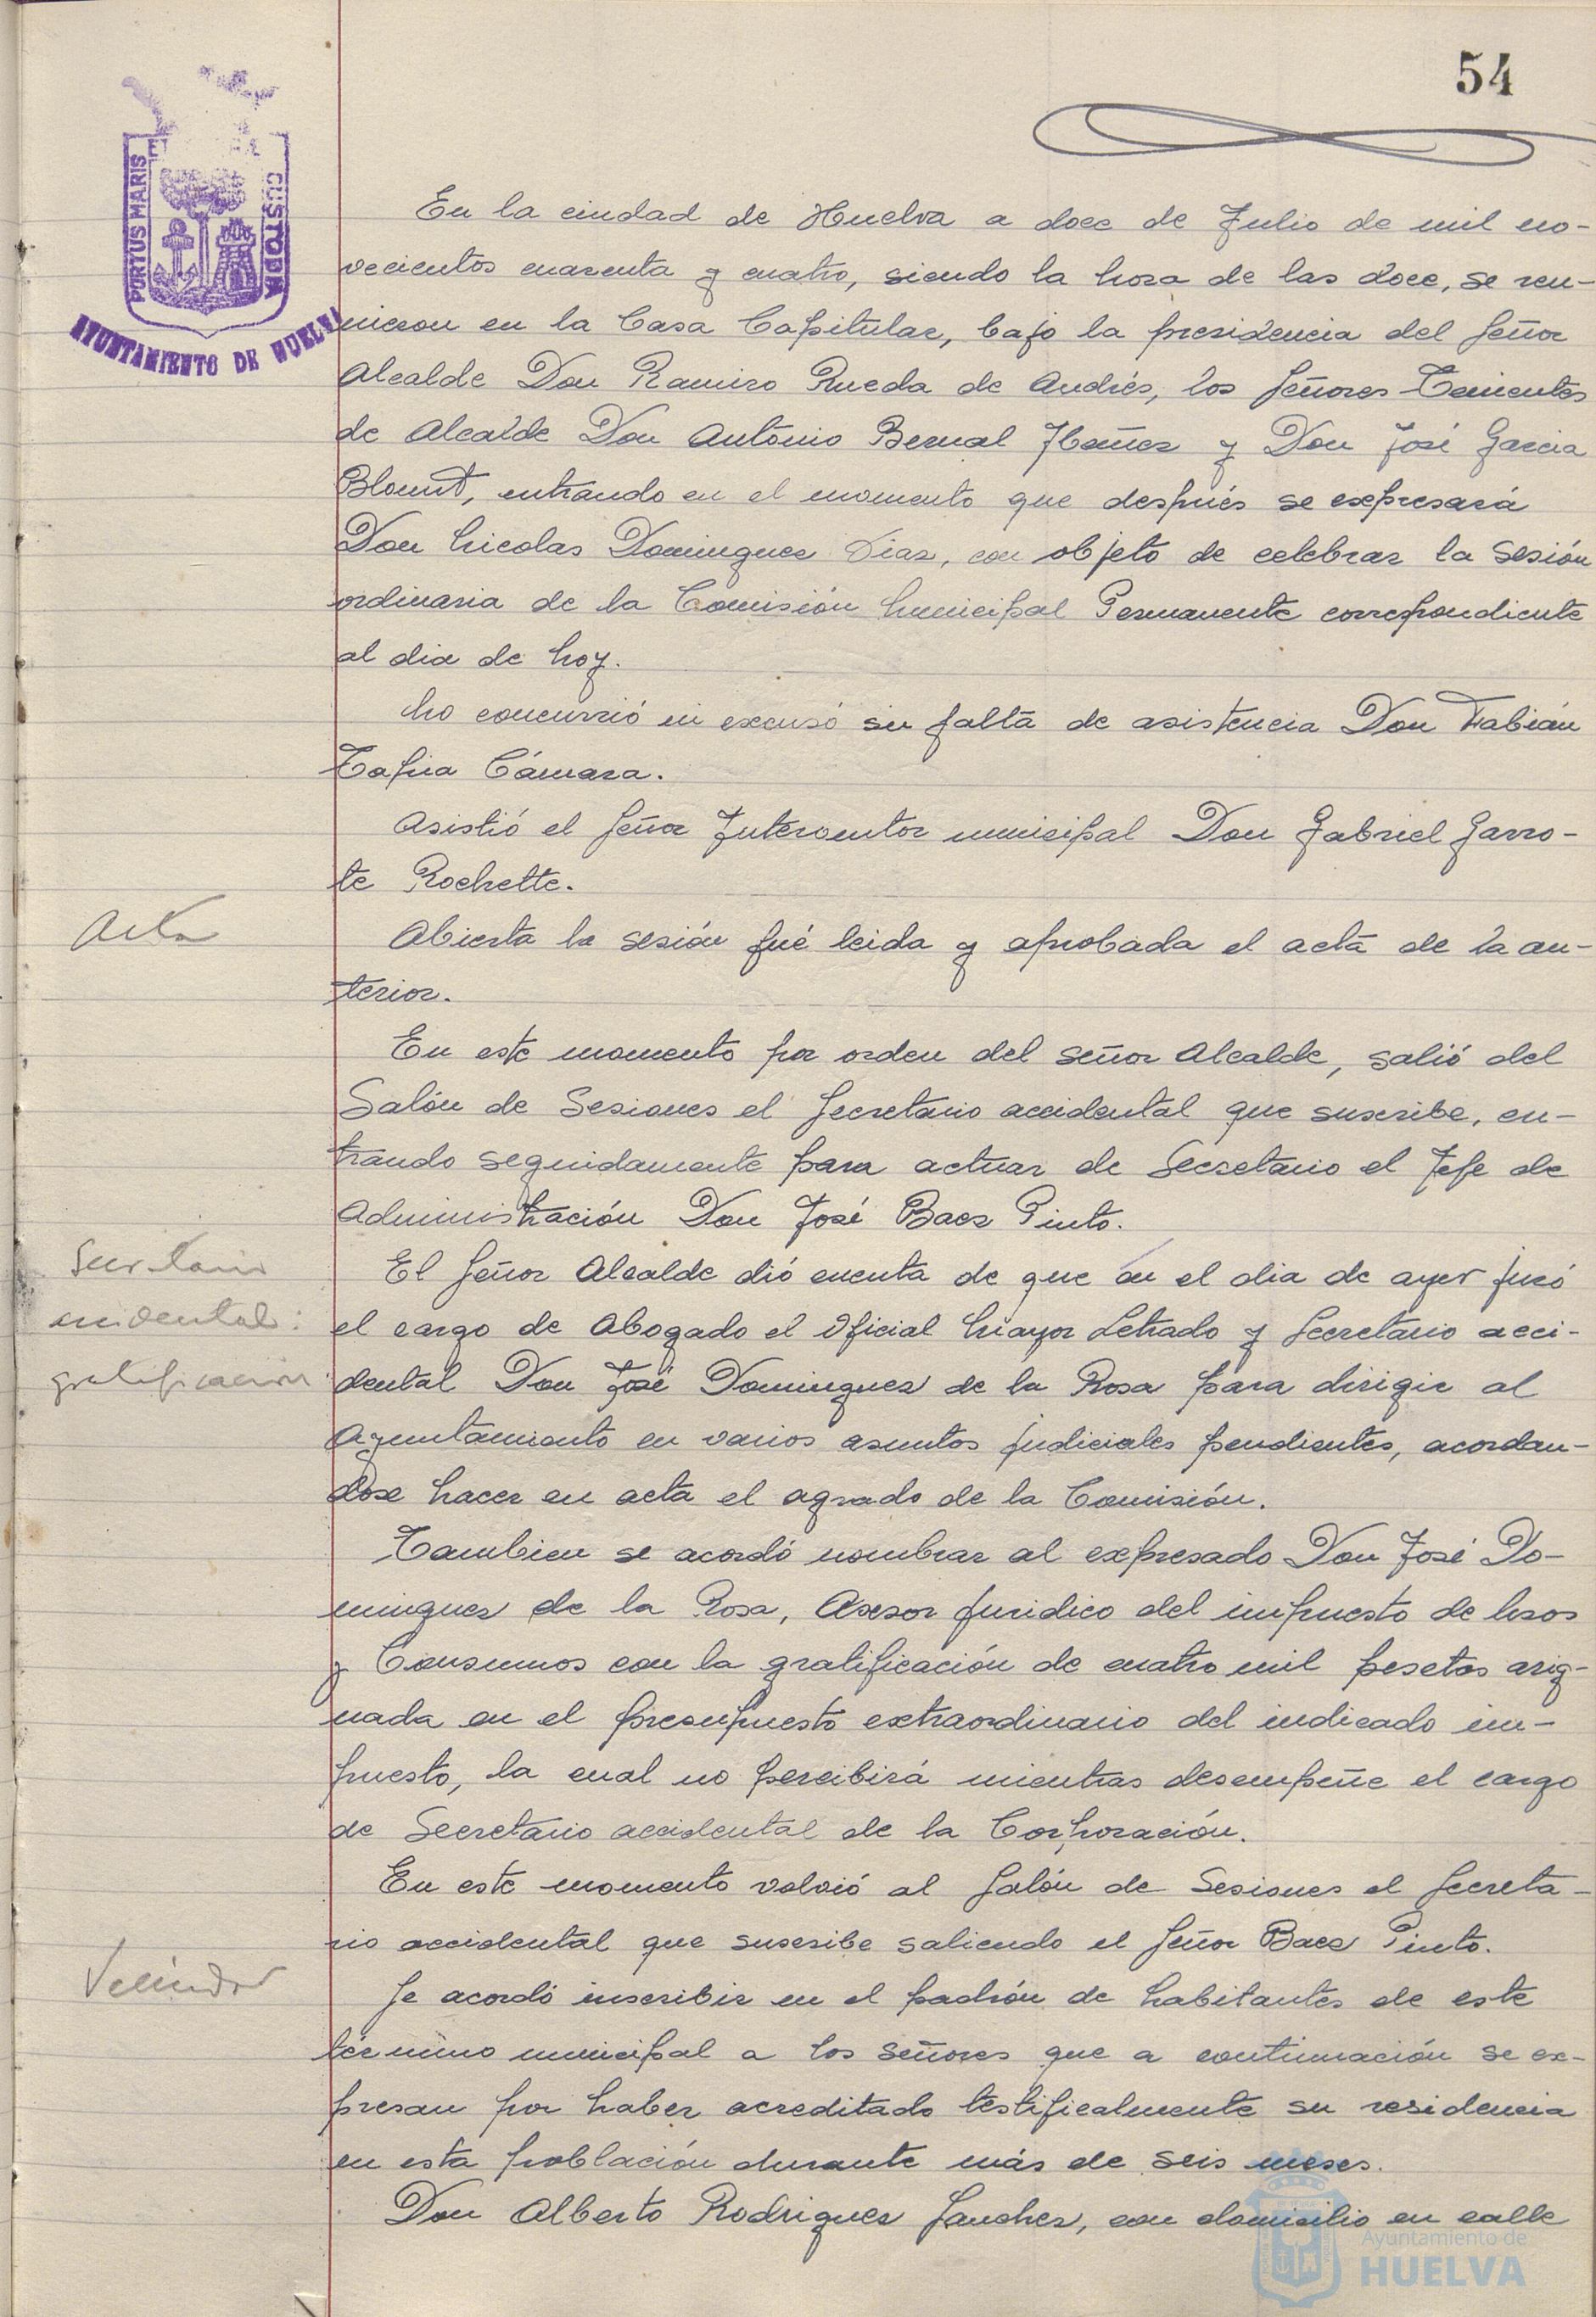 54
PORTUS MARIS ET CUSTODIA
AYUNTAMIENTO DE HUELVA
En la ciudad de Huelva a doce de Julio de mil no-
vecientos cuarenta y cuatro, siendo la hora de las doce, se reu-
nieron en la Casa Capitular, bajo la presidencia del Señor
Alcalde Don Ramiro Rueda de Andrés, los Señores Tenientes
de Alcalde Don Antonio Bernal Ibañez y Don José Garcia
Blount, entrando en el momento que después se expresará
Don Nicolas Dominguez Diaz, con objeto de celebrar la Sesión
ordinaria de la Comisión Municipal Permanente correspondiente
al dia de hoy.
No concurrió ni excusó su falta de asistencia Don Fabián
Tapia Cámara.
Asistió el Señor Interventor municipal Don Gabriel Garro-
te Rochette.
Acta
Abierta la sesión fué leida y aprobada el acta de la an-
terior.
En este momento por orden del señor Alcalde, salió del
Salón de Sesiones el Secretario accidental que suscribe, en-
trando seguidamente para actuar de Secretario el Jefe de
Administración Don José Baez Pinto.
Secretario
accidental:
gratificacion
El Señor Alcalde dió cuenta de que en el dia de ayer juró
el cargo de Abogado el Oficial Mayor Letrado y Secretario acci-
dental Don José Dominguez de la Rosa para dirigir al
Ayuntamiento en varios asuntos judiciales pendientes, acordan-
dose hacer en acta el agrado de la Comisión.
Tambien se acordó nombrar al expresado Don José Do-
minguez de la Rosa, Asesor Juridico del impuesto de Usos
y Consumos con la gratificación de cuatro mil pesetas asig-
nada en el presupuesto extraordinario del indicado im-
puesto, la cual no percibirá mientras desempeñe el cargo
de Secretario accidental de la Corporación.
En este momento volvió al Salón de Sesiones el Secreta-
rio accidental que suscribe saliendo el Señor Baez Pinto.
Vecindad
Se acordó inscribir en el padrón de habitantes de este
término municipal a los señores que a continuación se ex-
presan por haber acreditado testificalmente su residencia
en esta población durante más de seis meses.
Don Alberto Rodriguez Sanchez, con domicilio en calle
Ayuntamiento de
HUELVA